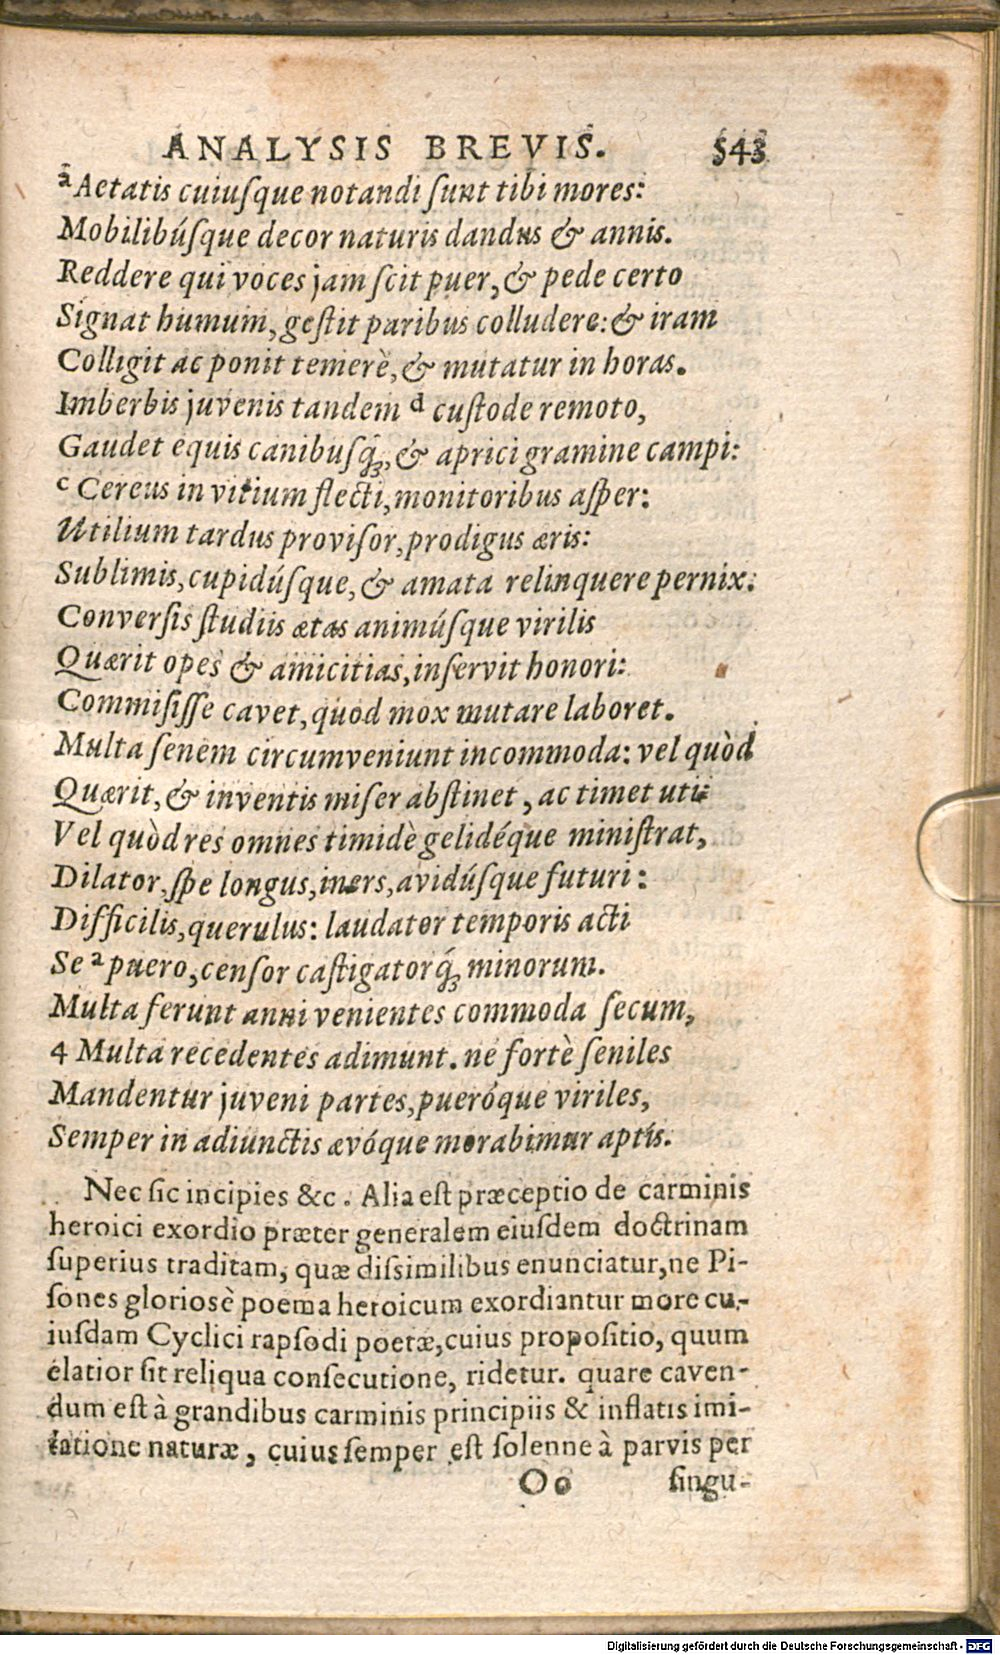 ANALYSIS BREVIS. 543
a Aetatis cuiuſque notandi ſunt tibi mores:
Mobilibúſque decor naturis dandus & annis.
Reddere qui voces jam ſcit puer, & pede certo
Signat humum, geſtit paribus colludere: & iram
Colligit ac ponit temerè, & mutatur in horas.
Imberbis juvenis tandem d cuſtode remoto,
Gaudet equis canibuſq́;, & aprici gramine campi:
c Cereus in vitium flecti, monitoribus aſper:
Utilium tardus proviſor, prodigus æris:
Sublimis, cupidúſque, & amata relinquere pernix.
Converſis ſtudiis ætas animúſque virilis
Quærit opes & amicitias, inſervit honori:
Commiſiſſe cavet, quod mox mutare laboret.
Multa ſenem circumveniunt incommoda: vel quòd
Quærit, & inventis miſer abſtinet, ac timet uti:
Vel quòd res omnes timidè gelidéque miniſtrat,
Dilator, ſpe longus, iners, avidúſque futuri:
Difficilis, querulus: laudator temporis acti
Se a puero, cenſor caſtigatorq́; minorum.
Multa ferunt anni venientes commoda ſecum,
4 Multa recedentes adimunt. ne fortè ſeniles
Mandentur juveni partes, pueróque viriles,
Semper in adiunctis ævóque morabimur aptis.
Nec ſic incipies &c. Alia eſt præceptio de carminis
heroici exordio præter generalem eiuſdem doctrinam
ſuperius traditam, quæ diſsimilibus enunciatur, ne Pi-
ſones glorioſè poema heroicum exordiantur more cu-
iuſdam Cyclici rapſodi poetæ, cuius propoſitio, quum
elatior ſit reliqua conſecutione, ridetur. quare caven-
dum eſt à grandibus carminis principiis & inflatis imi-
tatione naturæ, cuius ſemper eſt ſolenne à parvis per
Oo ſingu-
Digitalisierung gefördert durch die Deutsche Forschungsgemeinschaft - DFG